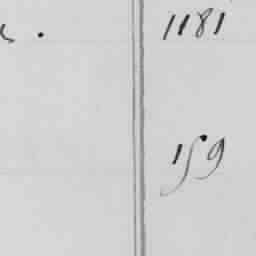 1181
159